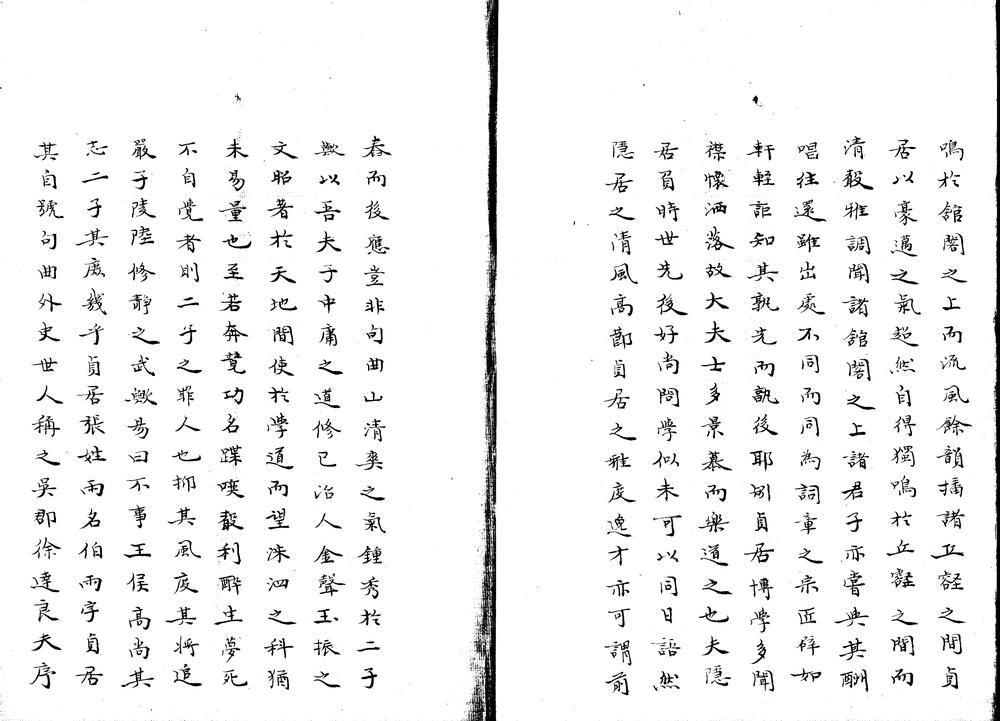 鳴於舘閣之上而流風餘韻播諸丘壑之間貞
居以豪邁之氣超然自得獨鳴於丘壑之間而
清聲雅調聞諸舘閣之上諸君子亦嘗與其酬
唱往還雖出處不同而同為詞章之宗匠辟如
軒輊詎知其孰先而孰後耶矧貞居博學多聞
襟懷洒落故大夫士多景慕而樂道之也夫隱
居貞居時世先後好尚問學似未可以同日語然
隱居之清風高節貞居之雅度逸才亦可謂前
春而後應豈非句曲山清爽之氣鍾秀於二子
歟以吾夫子中庸之道修己治人金聲玉振之
文昭著於天地間使於學道而望洙泗之科猶
未易量也至若奔鶩功名蹀嗼聲利醉生夢死
不自覺者則二子之罪人也抑其風度其將追
嚴子陵陸修靜之武歟易曰不事王侯高尚其
志二子其庶幾乎貞居張姓雨名伯雨字貞居
其自號句曲外史世人稱之吳郡徐達良夫序